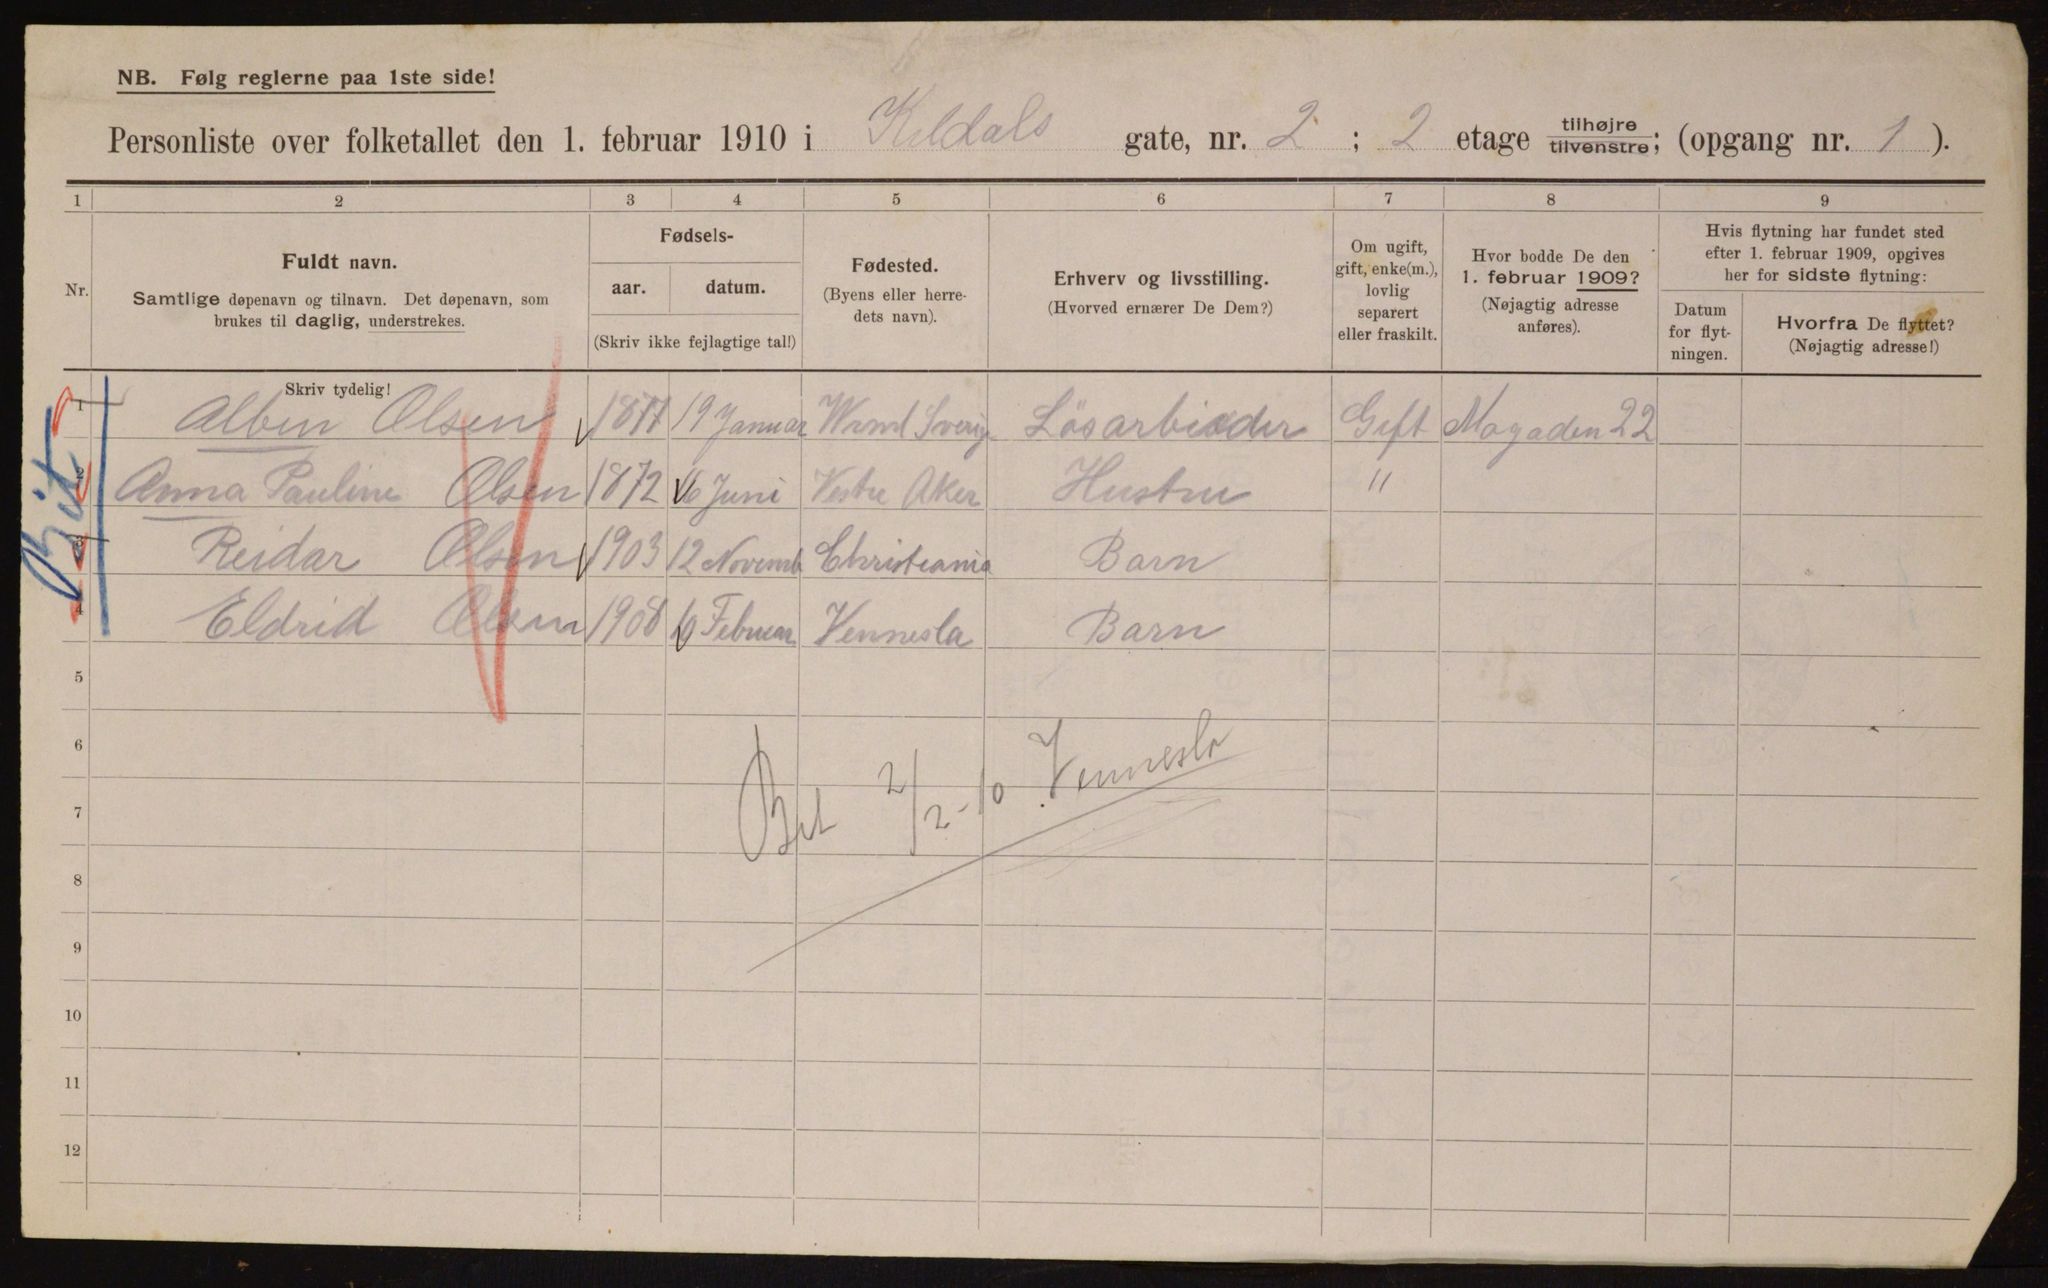 NB. Følg reglerne paa 1ste side!
Personliste over folketallet den 1. februar 1910 i Keldals gate, nr. 2 ; 2 etage tilhøjre tilvenstre; (opgang nr. 1 ).
1 2 3 4 5 6 7 8 9
Nr.
Fuldt navn.
Samtlige døpenavn og tilnavn. Det døpenavn, som
brukes til daglig, understrekes.
Fødsels-
aar. datum.
(Skriv ikke fejlagtige tal!)
Fødested.
(Byens eller herre-
dets navn).
Erhverv og livsstilling.
(Hvorved ernærer De Dem?)
Om ugift,
gift, enke(m.),
lovlig
separert
eller fraskilt.
Hvor bodde De den
1. februar 1909?
(Nøjagtig adresse
anføres).
Hvis flytning har fundet sted
efter 1. februar 1909, opgives
her for sidste flytning:
Datum
for flyt-
ningen.
Hvorfra De flyttet?
(Nøjagtig adresse!)
Skriv tydelig!
1 Albin Olsen 19 Januar Sverige Lösarbeider Gift Mogaden 22
2 Anna Pauline Olsen 1872 16 Juni Vestre Aker Hustru "
3 Reidar Olsen 1903 12 Novemb Christiania Barn
4 Eldrid Olsen 1908 10 Februar Vennesla Barn
5
6
Bet 2/2-10 Vennesla
7
8
9
10
11
12